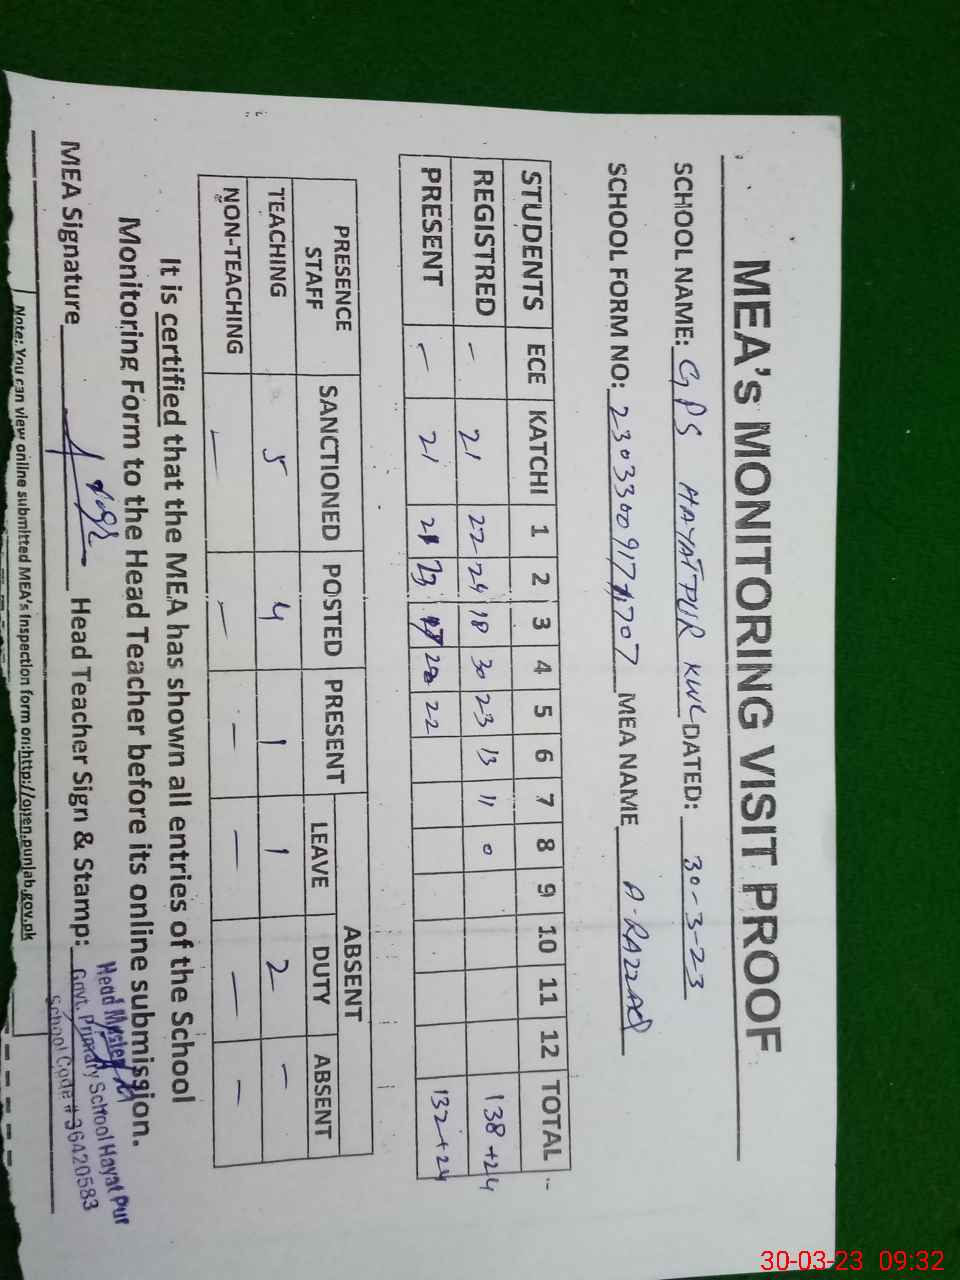 MEA's MONITORING VISIT PROOF
SCHOOL NAME: GPS HAYATPUR KWL DATED: 30-3-23
SCHOOL FORM NO: MEA NAME A.RAZZAQ
STUDENTS ECE KATCHI 1 2 3 4 5 6 7 8 9 10 11 12 TOTAL
REGISTRED - 21 22 24 18 30 23 13 11 0 138+24
PRESENT - 21 21 23 22 132+24
PRESENCE STAFF SANCTIONED POSTED PRESENT ABSENT
LEAVE DUTY ABSENT
TEACHING 5 4 1 1 2 -
NON-TEACHING - - - - - -
It is certified that the MEA has shown all entries of the School
Monitoring Form to the Head Teacher before its online submission.
MEA Signature Head Teacher Sign & Stamp:
Head Master
Govt. Primary School Hayat Pur
School Code # 36420583
Note: You can view online submitted MEA's Inspection form on:http://open.punjab.gov.pk
30-03-23 09:32